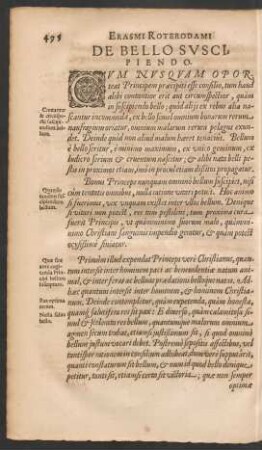 498
ERASMI ROTERODAMI
DE BELLO SVSCI,
PIENDO.
CVM NVSQVAM OPOR,
teat Principem præcipiti esse consilio, tum haud
alibi cunctantior erit aut circunspectior, quàm
in suscipiendo bello: quòd alijs ex rebus alia
scantur incommoda, ex bello simul omnium bonarum rerum
naufragium oriatur, omnium malarum rerum pelagus exun-
det. Deinde quòd non aliud malum hæret tenacius. Bellum
è bello seritur, è minimo maximum, ex vnico geminum, ex
ludicro serium & cruentum nascitur, & alibi nata belli pe-
stis in proximos etiam, imò procul etiam dissitos propagatur.
Bonus Princeps nunquam omnino bellum suscipiet, nisi
cum tentatis omnibus, nulla ratione vitari potuit. Hoc animo
si fuerimus, vix vnquam existet inter vllos bellum. Denique
si vitari non potest, res tam pestilens, tum proxima cura
fuerit Principis, vt quàm minimo suorum malo, quàm mi-
nimo Christiani sanguinis impendio geratur, & quàm potest
ocyssimè finiatur.
Primùm illud expendat Princeps verè Christianus, quan-
tum intersit inter hominem paci ac beneuolentiæ natum animal,
& inter feras ac belluas prædationi belloque natas. Ad
hæc quantum intersit inter hominem & hominem Christia-
num. Deinde contempletur, quàm expetenda, quàm honesta,
quamque salutifera res sit pax: E diuerso, quàm calamitosa si-
mul & scelerata res bellum, quantumque malorum omnium
agmen secum trahat, etiam si iustissimum sit, si quod omnino
bellum iustum vocari debet. Postremò sepositis affectibus, vel
tantisper rationem in consilium adhibeat dum verè supputarit,
quanti constaturum sit bellum, & num id quod bello denique
petitur, tanti sit, etiam si certa sit victoria, quæ non semper
optimæ